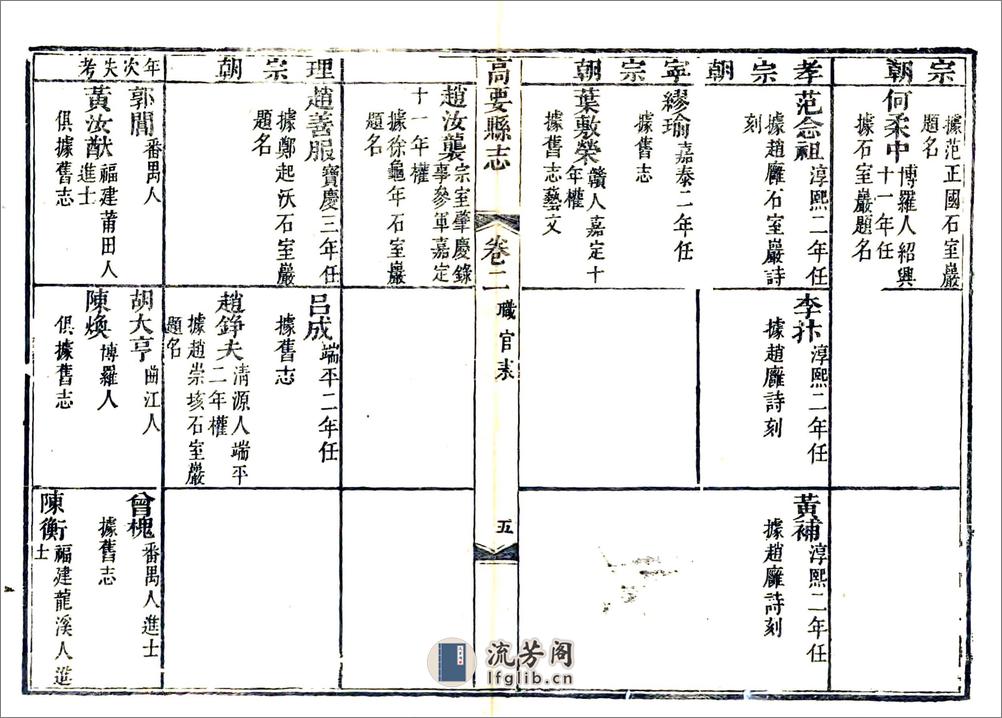 宗朝
據范正國石室巖
題名
何柔中博羅人紹興
十一年任
據石室巖題名
孝宗朝
范念祖淳熙二年任
據趙龐石室巖詩
刻
李抃淳熙二年任
據趙龐詩刻
黃補淳熙二年任
據趙龐詩刻
寧宗朝
繆瑜嘉泰二年任
據舊志
葉敷榮贛人嘉定十
年權
據舊志藝文
高要縣志
卷二
職官表
五
趙汝襲宗室肇慶錄
事參軍嘉定
十一年權
據徐龜年石室巖
題名
理宗朝
趙善服寶慶三年任
據鄭起沃石室巖
題名
呂成端平二年任
據舊志
趙錚夫清源人端平
二年權
據趙崇垓石室巖
題名
年次失考
郭聞番禺人
黃汝猷福建莆田人
進士
俱據舊志
胡大亨曲江人
陳煥博羅人
俱據舊志
曾槐番禺人進士
據舊志
陳衡福建龍溪人進
士
流芳阁
lfglib.cn